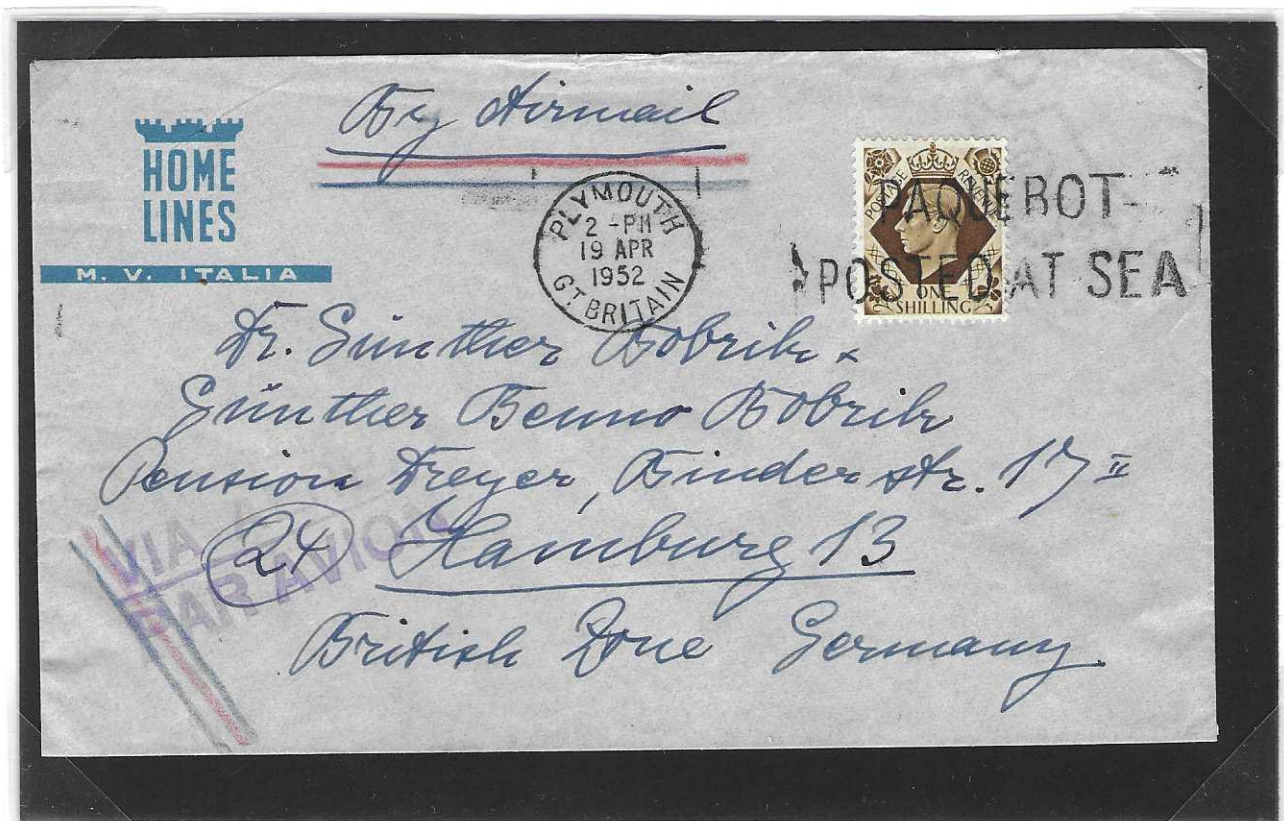 By Airmail
HOME
LINES
M. V. ITALIA
PLYMOUTH
2 - PM
19 APR
1952
GT. BRITAIN
POSTAGE REVENUE
ONE
SHILLING
PAQUEBOT
POSTED AT SEA
Dr. Günther Bobrik
Günther Benno Bobrik
Pension Dreyer, Binderstr. 17 II
24 Hamburg 13
British Zone Germany.
VIA
PAR AVION